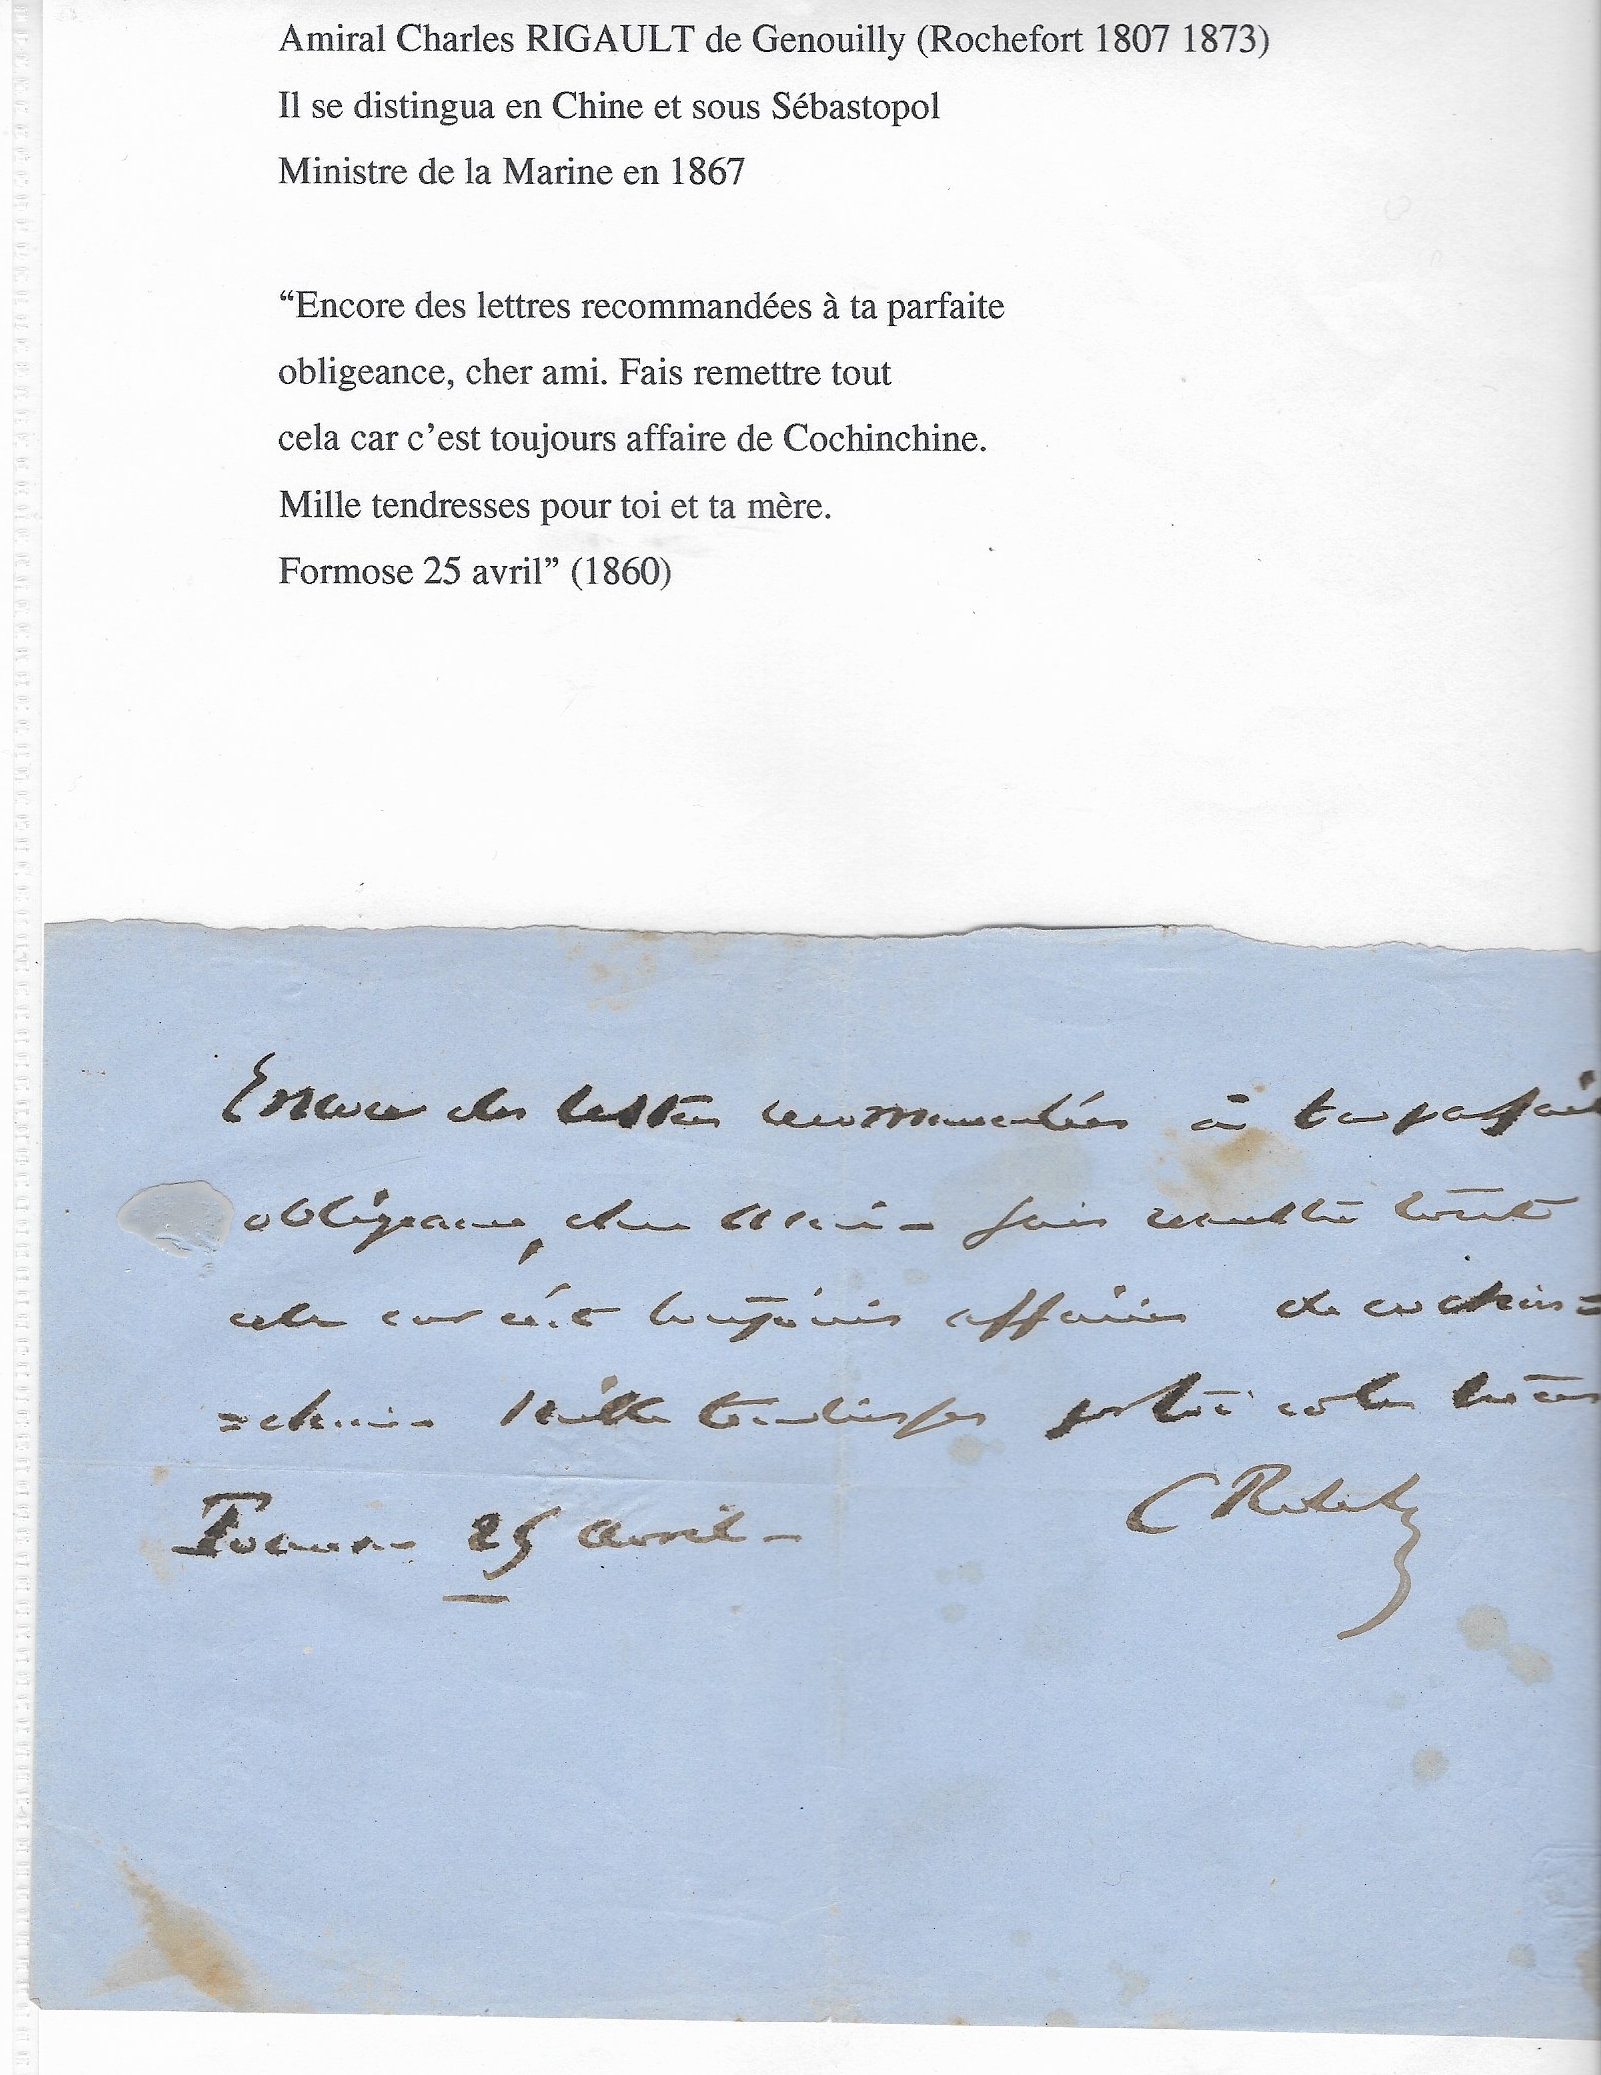 Amiral Charles RIGAULT de Genouilly (Rochefort 1807 1873)
Il se distingua en Chine et sous Sébastopol
Ministre de la Marine en 1867
“Encore des lettres recommandées à ta parfaite
obligeance, cher ami. Fais remettre tout
cela car c’est toujours affaire de Cochinchine.
Mille tendresses pour toi et ta mère.
Formose 25 avril” (1860)
Encore des lettres recommandées à ta parfai
obligeance, cher ami - fais remettre tout
cela car c'est toujours affaires de cochin=
=chine. Mille tendresses pr toi et ta mère
25 avril -
C